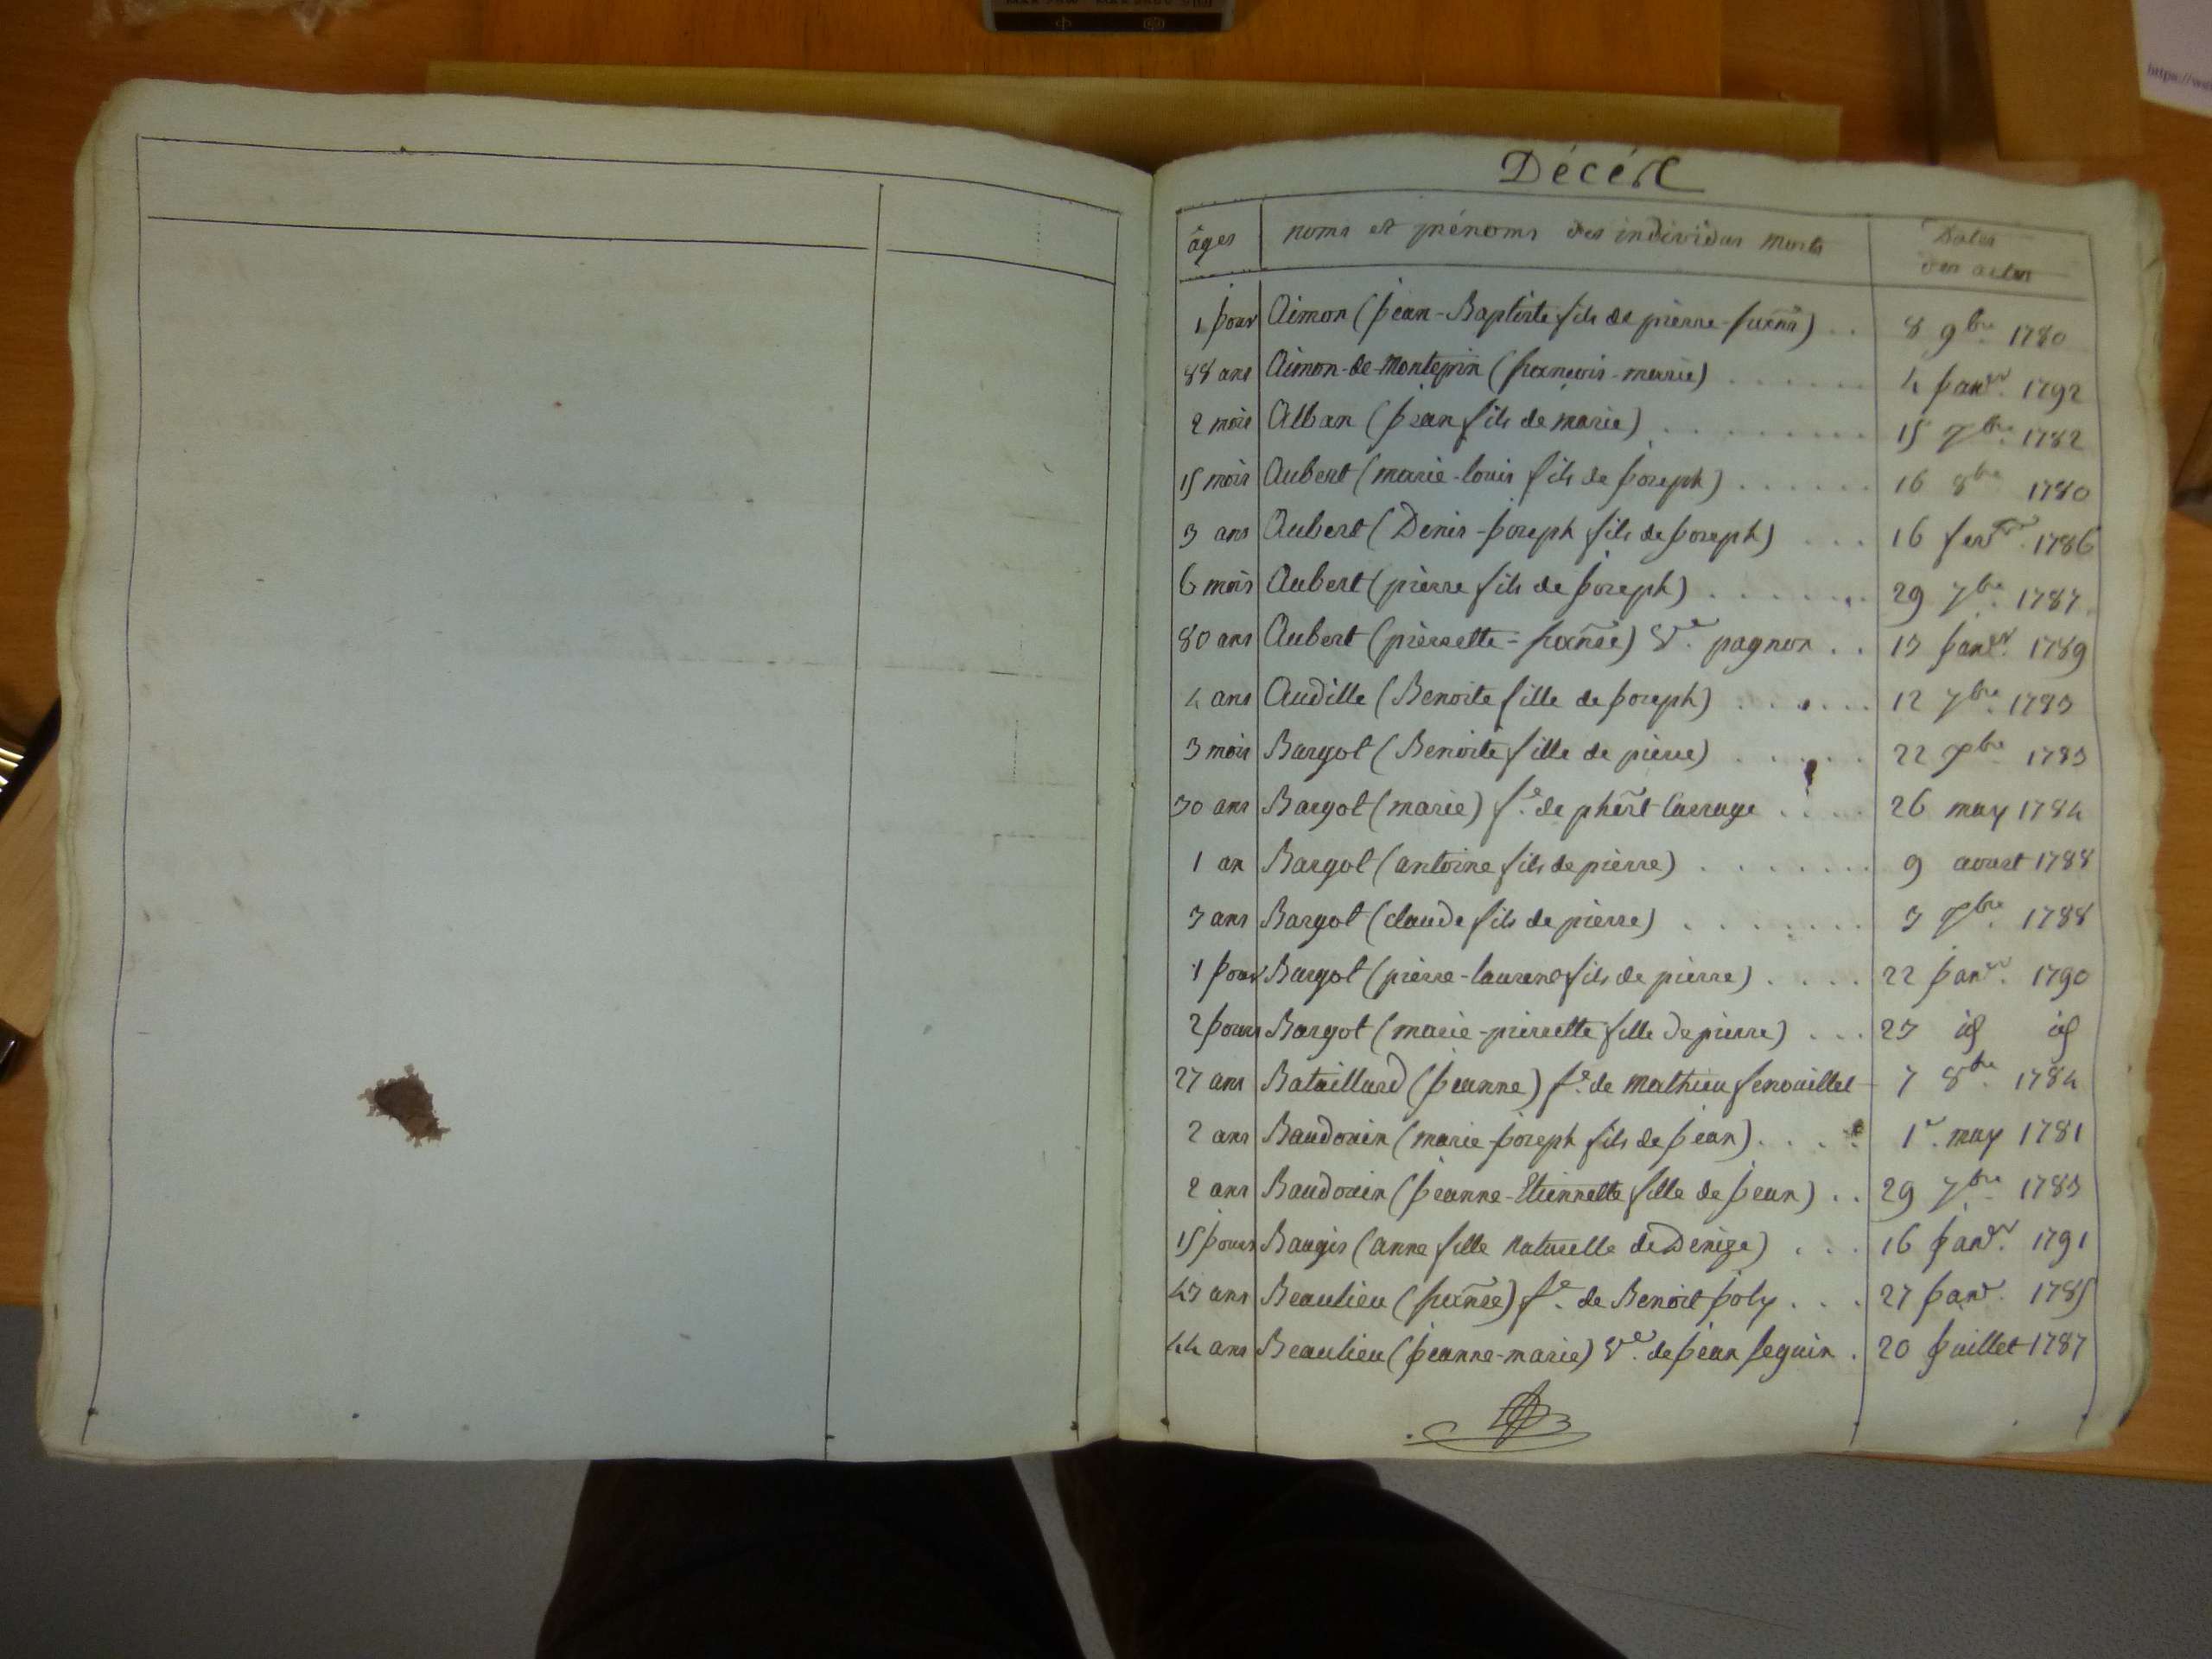 Décés
âges noms et prénoms des individus morts Dates
des actes
1 jour Aimon (jean-Baptiste fils de pierre-françs) . . 8 9bre 1780
88 ans Aimon-de-Montepin (françois-marie) . . . . . . 4 janvr. 1792
2 mois Alban (jean fils de marie) . . . . . . . . . 15 bre. 1782
15 mois Aubert (marie-louis fils de joseph) . . . . . . 16 8bre 1780
3 ans Aubert (Denis-joseph fils de joseph) . . . 16 fevr. 1786
6 mois Aubert (pierre fils de joseph) . . . . . . . 29 7bre. 1787
80 ans Aubert (pierrette-franse) Ve. pagnon . . 13 janvr. 1789
4 ans Audille (Benoite fille de joseph) . . . . . . 12 7bre. 1783
3 mois Bargot (Benoite fille de pierre) . . . . . . 22 bre. 1783
30 ans Bargot (marie) fe. de phert Carruge . . . . 26 may 1784
1 an Bargot (antoine fils de pierre) . . . . . . . 9 aoust 1788
3 ans Bargot (claude fils de pierre) . . . . . . . 3 bre. 1788
1 jour Bargot (pierre-laurent fils de pierre) . . . . 22 janvr. 1790
2 jours Bargot (marie-pierrette fille de pierre) . . . 23 id id
27 ans Bataillard (jeanne) fe. de mathieu fenouillet 7 8bre. 1784
2 ans Baudouin (marie-joseph fils de jean) . . . . 1r. may 1781
2 ans Baudouin (jeanne-Etiennette fille de jean) . . 29 7bre 1783
15 jours Baugis (anne fille naturelle de Denize) . . . 16 janvr. 1791
43 ans Beaulieu (franse) fe. de Benoit joly . . . 27 janv. 1785
44 ans Beaulieu (jeanne-marie) Ve. de jean seguin . 20 juillet 1787